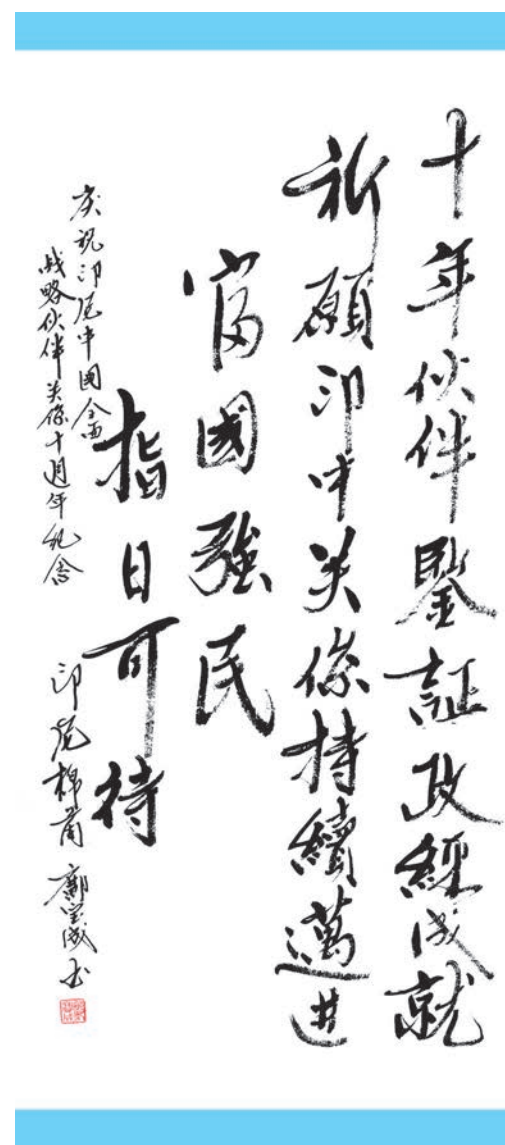 十年伙伴鑒証政經成就
祈願印中关係持續邁进
富國強民
指日可待
庆祝印尼中國全面
战略伙伴关係十週年纪念
印尼棉蘭 鄺宝成书